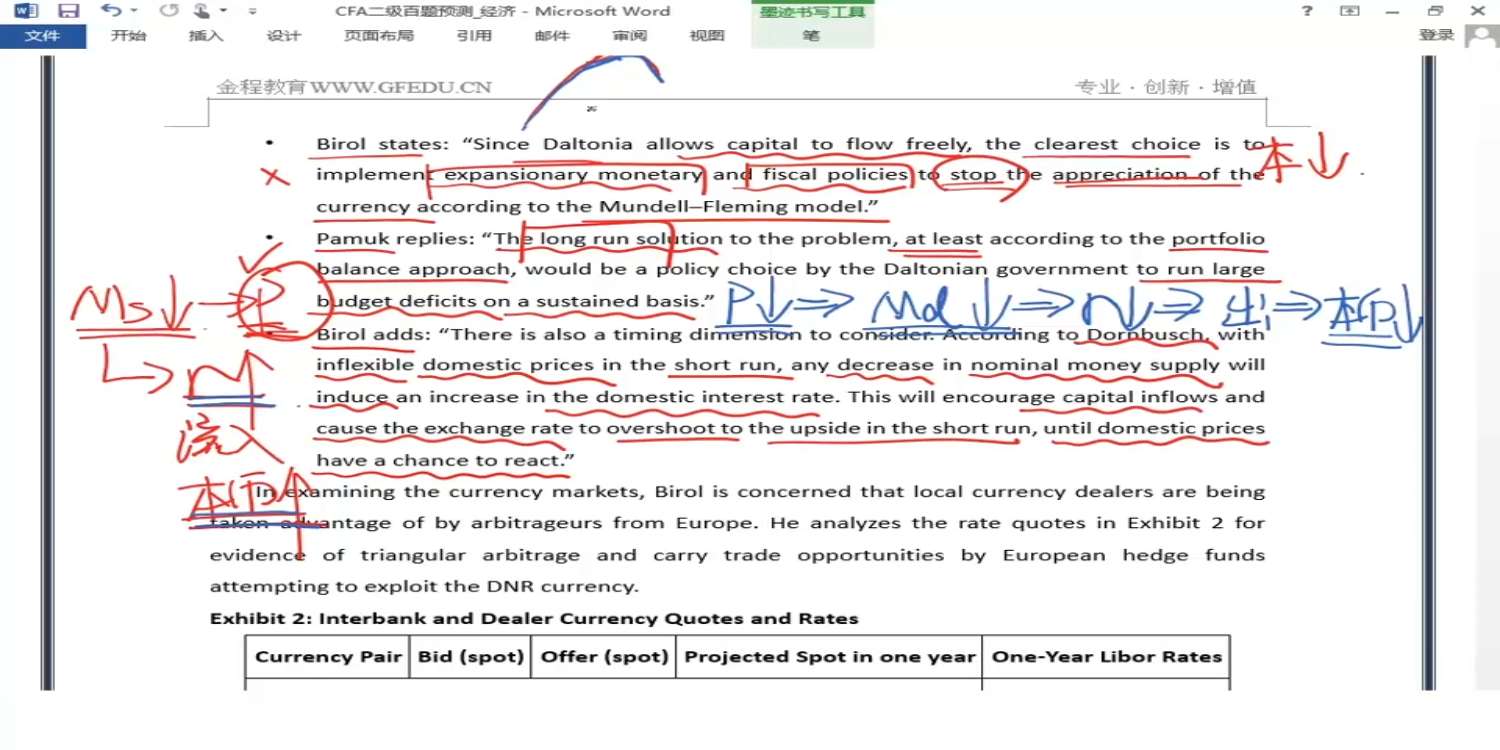 CFA二级百题预测_经济 - Microsoft Word
墨迹书写工具
?
文件 开始 插入 设计 页面布局 引用 邮件 审阅 视图 笔 登录
金程教育WWW.GFEDU.CN 专业 · 创新 · 增值
• Birol states: “Since Daltonia allows capital to flow freely, the clearest choice is to
implement expansionary monetary and fiscal policies to stop the appreciation of the
currency according to the Mundell–Fleming model.”
本↓
• Pamuk replies: “The long run solution to the problem, at least according to the portfolio
balance approach, would be a policy choice by the Daltonian government to run large
budget deficits on a sustained basis.”
Ms↓ → P
P↓ ⇒ Md↓ ⇒ r↓ ⇒ 出 ⇒ 本币↓
• Birol adds: “There is also a timing dimension to consider. According to Dornbusch, with
inflexible domestic prices in the short run, any decrease in nominal money supply will
induce an increase in the domestic interest rate. This will encourage capital inflows and
cause the exchange rate to overshoot to the upside in the short run, until domestic prices
have a chance to react.”
r↑
流入
本币↑
In examining the currency markets, Birol is concerned that local currency dealers are being
taken advantage of by arbitrageurs from Europe. He analyzes the rate quotes in Exhibit 2 for
evidence of triangular arbitrage and carry trade opportunities by European hedge funds
attempting to exploit the DNR currency.
Exhibit 2: Interbank and Dealer Currency Quotes and Rates
Currency Pair Bid (spot) Offer (spot) Projected Spot in one year One-Year Libor Rates